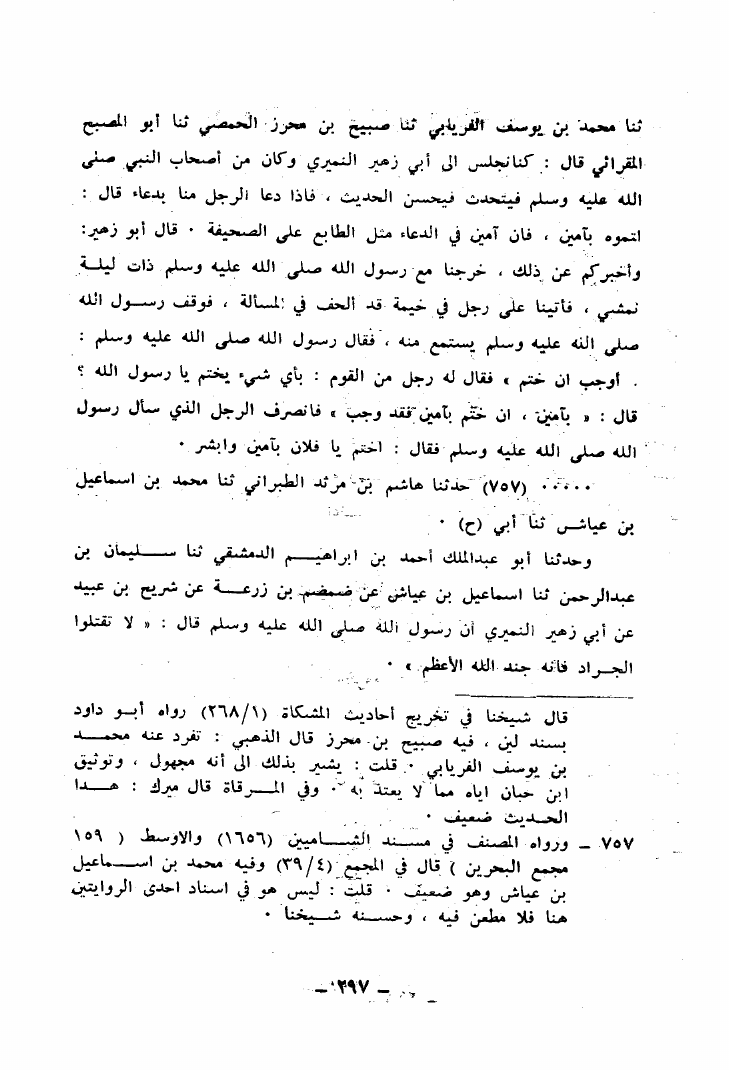 ثنا محمد بن يوسف الفريابي ثنا صبيح بن محرز الحمصي ثنا أبو المصبح
المقرائي قال : كنا نجلس الى أبي زهير النميري وكان من أصحاب النبي صلى
الله عليه وسلم فيتحدث فيحسن الحديث ، فاذا دعا الرجل منا بدعاء قال :
اتموه بآمين ، فان آمين في الدعاء مثل الطابع على الصحيفة ٠ قال أبو زهير:
وأخبركم عن ذلك ، خرجنا مع رسول الله صلى الله عليه وسلم ذات ليلة
نمشي ، فأتينا على رجل في خيمة قد ألحف في المسألة ، فوقف رسول الله
صلى الله عليه وسلم يستمع منه ، فقال رسول الله صلى الله عليه وسلم :
. أوجب ان ختم » فقال له رجل من القوم : بأي شيء يختم يا رسول الله ؟
قال : « بآمين ، ان ختم بآمين فقد وجب » فانصرف الرجل الذي سأل رسول
الله صلى الله عليه وسلم فقال : اختم يا فلان بآمين وابشر ٠
٠٠٠٠٠ (٧٥٧) حدثنا هاشم بن مرثد الطبراني ثنا محمد بن اسماعيل
بن عياش ثنا أبي (ح) ٠
وحدثنا أبو عبدالملك أحمد بن ابراهيم الدمشقي ثنا سليمان بن
عبدالرحمن ثنا اسماعيل بن عياش عن ضمضم بن زرعة عن شريح بن عبيد
عن أبي زهير النميري أن رسول الله صلى الله عليه وسلم قال : « لا تقتلوا
الجراد فانه جند الله الأعظم » ٠
قال شيخنا في تخريج أحاديث المشكاة (٢٦٨/١) رواه أبو داود
بسند لين ، فيه صبيح بن محرز قال الذهبي : تفرد عنه محمد
بن يوسف الفريابي ٠ قلت : يشير بذلك الى أنه مجهول ، وتوثيق
ابن حبان اياه مما لا يعتد به ٠ وفي المرقاة قال ميرك : هذا
الحديث ضعيف ٠
٧٥٧ – ورواه المصنف في مسند الشاميين (١٦٥٦) والاوسط ( ١٥٩
مجمع البحرين ) قال في المجمع (٣٩/٤) وفيه محمد بن اسماعيل
بن عياش وهو ضعيف ٠ قلت : ليس هو في اسناد احدى الروايتين
هنا فلا مطعن فيه ، وحسنه شيخنا ٠
– ٢٩٧ –